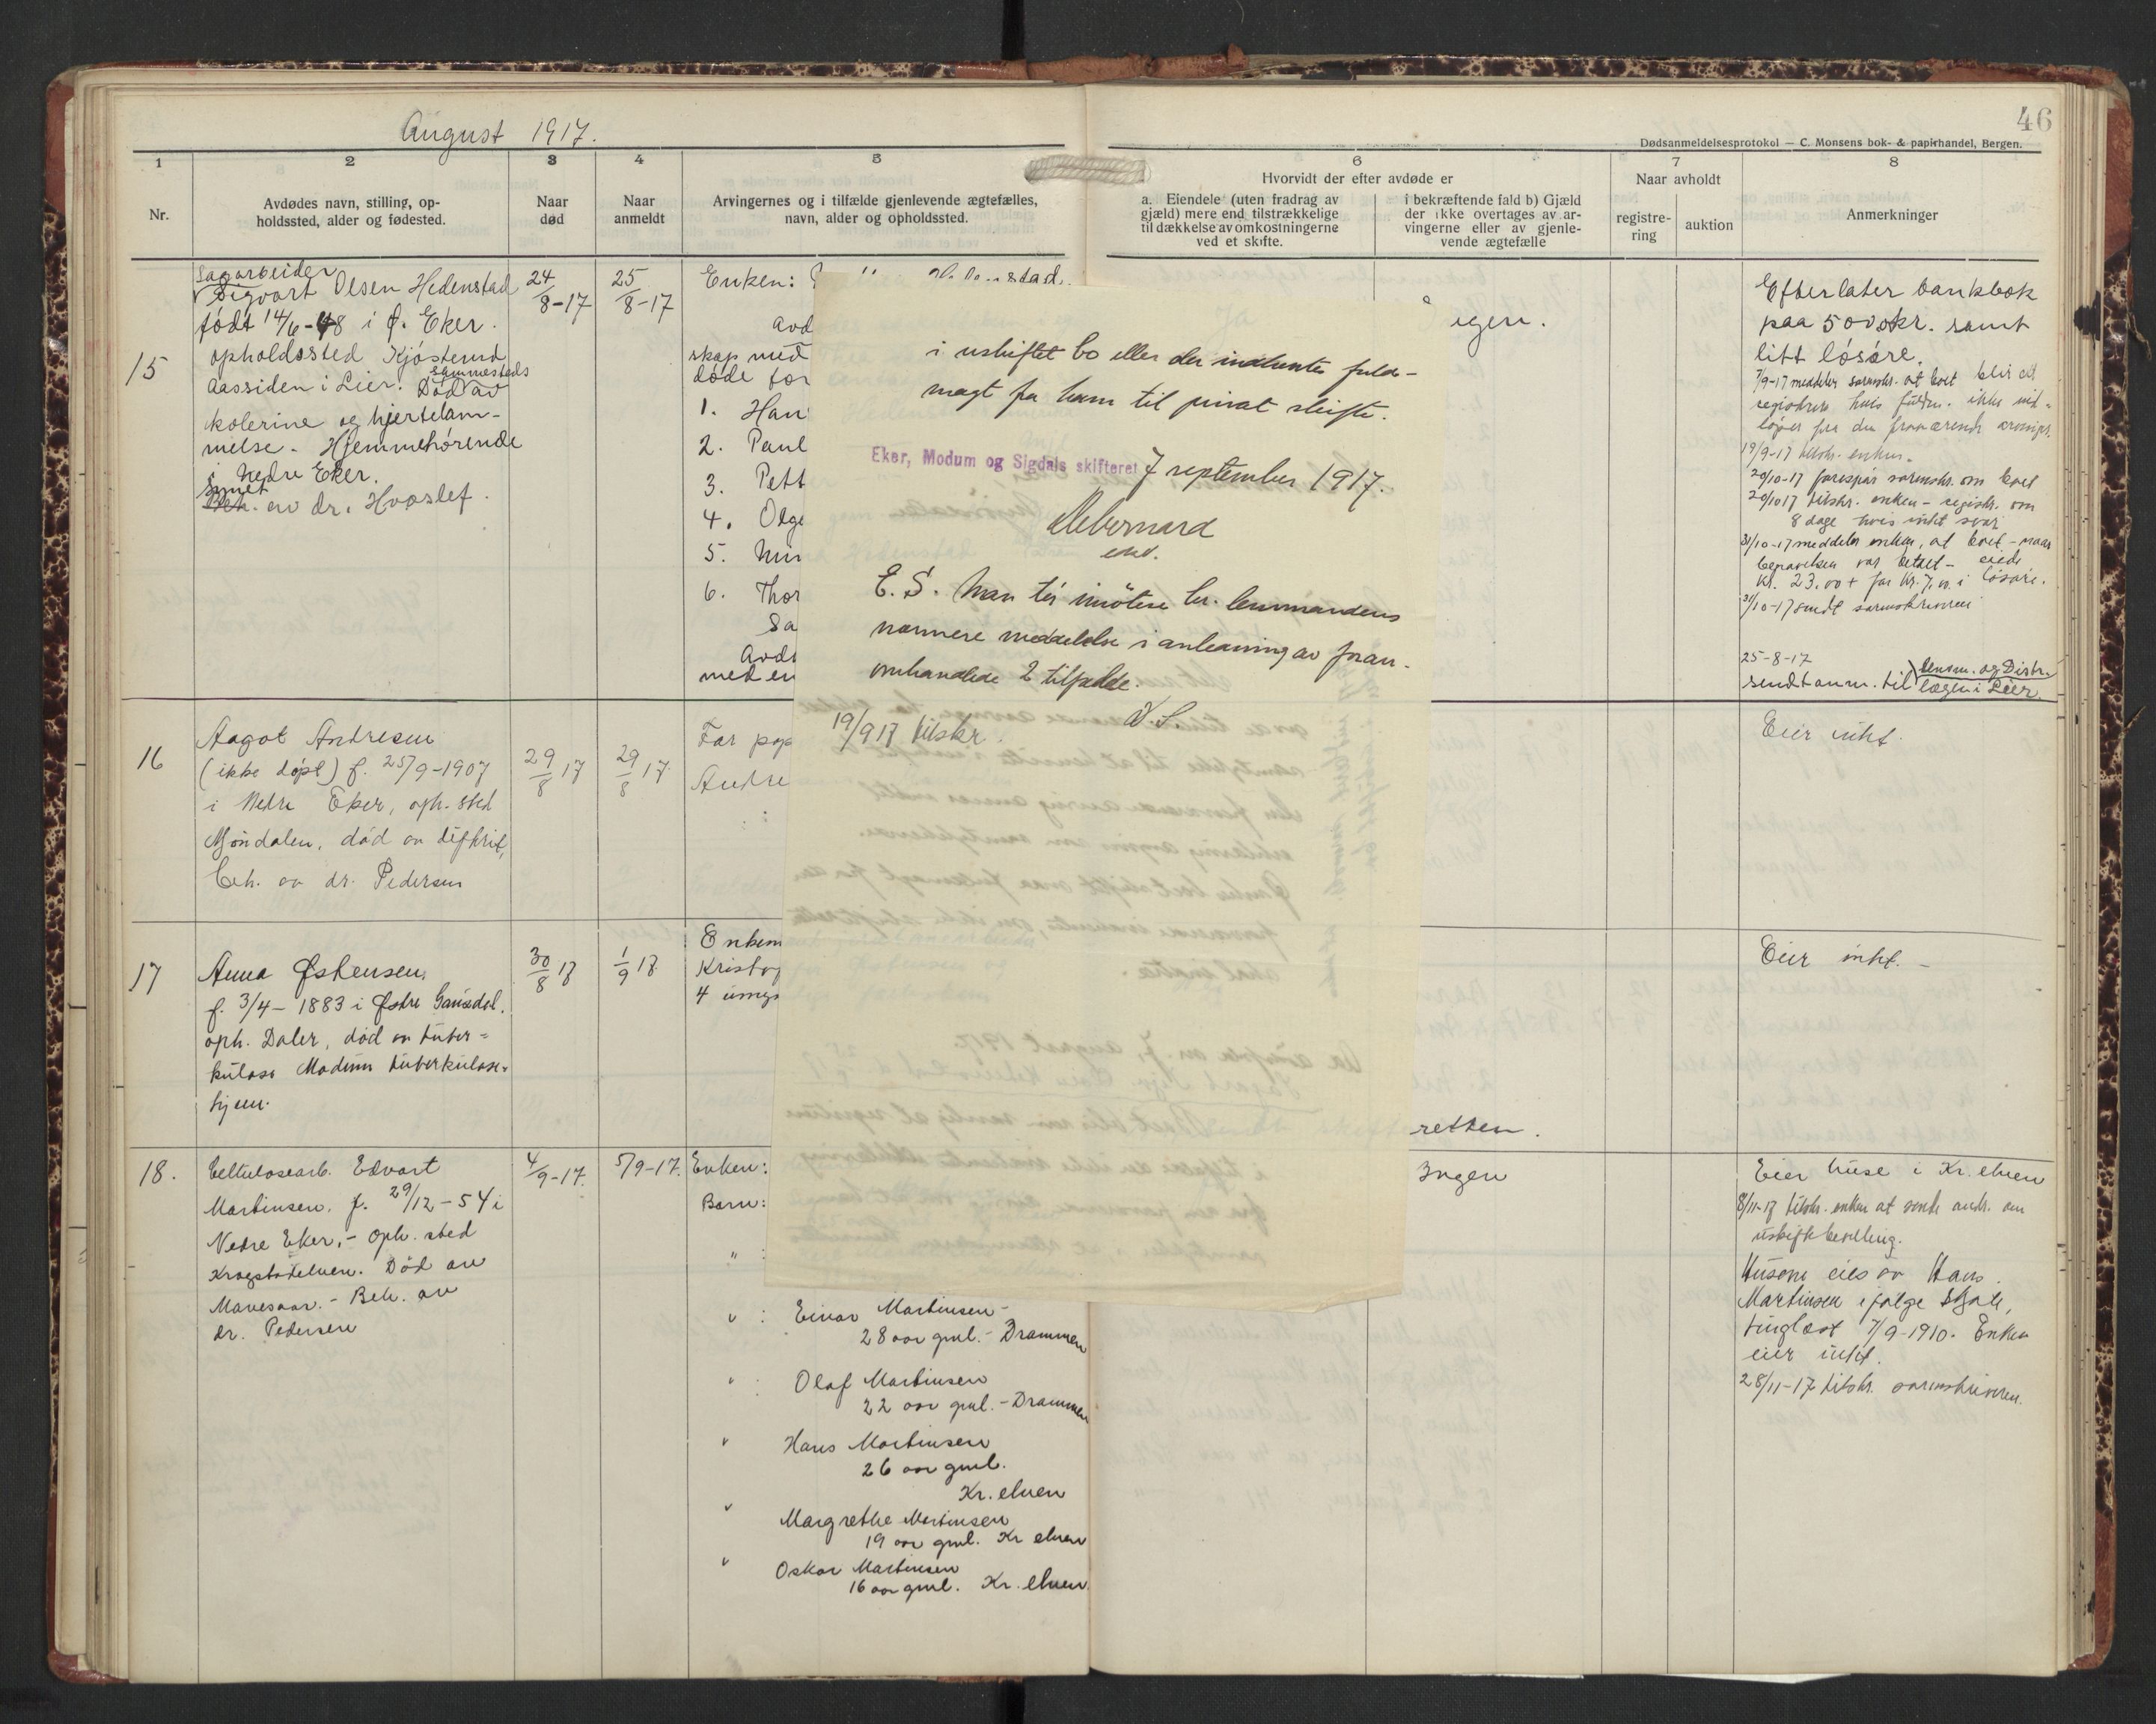 August 1917.
46
Dødsanmeldelsesprotokol — C. Monsens bok- & papirhandel, Bergen.
1
2
3
4
5
6
7
8
Nr.
Avdødes navn, stilling, op-
holdssted, alder og fødested.
Naar
død
Naar
anmeldt
Arvingernes og i tilfælde gjenlevende ægtefælles,
navn, alder og opholdssted.
Hvorvidt der efter avdøde er
a. Eiendele (uten fradrag av
gjæld) mere end tilstrækkelige
til dækkelse av omkostningerne
ved et skifte.
i bekræftende fald b) Gjæld
der ikke overtages av ar-
vingerne eller av gjenle-
vende ægtefælle
Naar avholdt
registre-
ring
auktion
Anmerkninger
15
Sagarbeider
Sigvart Olsen Hedenstad
født 14/6-48 i Ø. Eker.
opholdssted Kjøsterud
Aassiden i Lier. Død av
sammesteds
kolerine og hjertelam-
melse. Hjemmehørende
i Nedre Eker.
Synet
av dr. Hvoslef.
24/8-17
25/8-17
Enken:
Avd
skap med
døde for
1. Han
2. Paul
3. Pett
4. Olge
5. Min
6. Thor
Sa
Avd
med en
i uskiftet bo eller der indhentes fuld-
magt fra ham til privat skifte.
Eker, Modum og Sigdals skifteret 7 september 1917.
E. S. Man tør imötese hr. lensmandens
nærmere meddelelse i anledning av foran-
omhandlede 2 tilfælde.
D. S.
19/9 17 tilskr.
igen.
Efterlater bankbok
paa 500 kr. samt
litt løsøre.
7/9-17 meddeler sorenskr. at boet blir at
registrere hvis fuldm. ikke ind-
løper fra den fraværende arving.
19/9-17 tilskr. enken.
20/10-17 forespør sorenskr. om boet
20/10 17 tilskr. enken - registr. om
8 dage hvis intet svar
31/10-17 meddeler enken, at boet - naar
begravelsen var betalt - eiede
kr. 23.00 + for kr. 7.00 i løsøre.
31/10-17 sendt sorenskriveren
25-8-17
sendt anm. til lensm. og Distr.
lægen i Lier.
16
Aagot Andresen
(ikke døpt) f. 25/9-1907
i Nedre Eker, oph. sted
Mjöndalen, död av difteri,
beh. av dr. Pedersen
29/8 17
29/8 17.
Far pap
Andre
Eier intet.
17
Anna Østensen,
f. 3/4 - 1883 i Østre Gausdal.
oph. Daler, död av tuber-
kulose Modum tuberkulose-
hjem.
30/8 17
1/9 17.
Enkem
Kristof
4 umyn
retten.
Eier intet. -
18.
Cellulosearb. Edvart
Martinsen. f. 29/12 - 54 i
Nedre Eker, - oph. sted
Krogstadelven. Död av
Mavesaar. - Beh. av
dr. Pedersen
4/9-17.
5/9-17.
Enken:
Barn:
" :
" : Einar Martinsen -
28 aar gml. - Drammen
" : Olaf Martinsen
22 aar gml. - Drammen
" Hans Martinsen
26 aar gml.
Kr. elven
" Margrethe Martinsen
19 aar gml. Kr elven
" Oskar Martinsen
16 aar gml. Kr. elven
Ingen
Eier huse i Kr. elven
8/11-17 tilskr. enken at sende andr. om
uskiftebevilling.
Husene eies av Hans
Martinsen ifølge skjøte,
tinglæst 7/9-1910. Enken
eier intet.
28/11-17 tilskr. sorenskriveren.